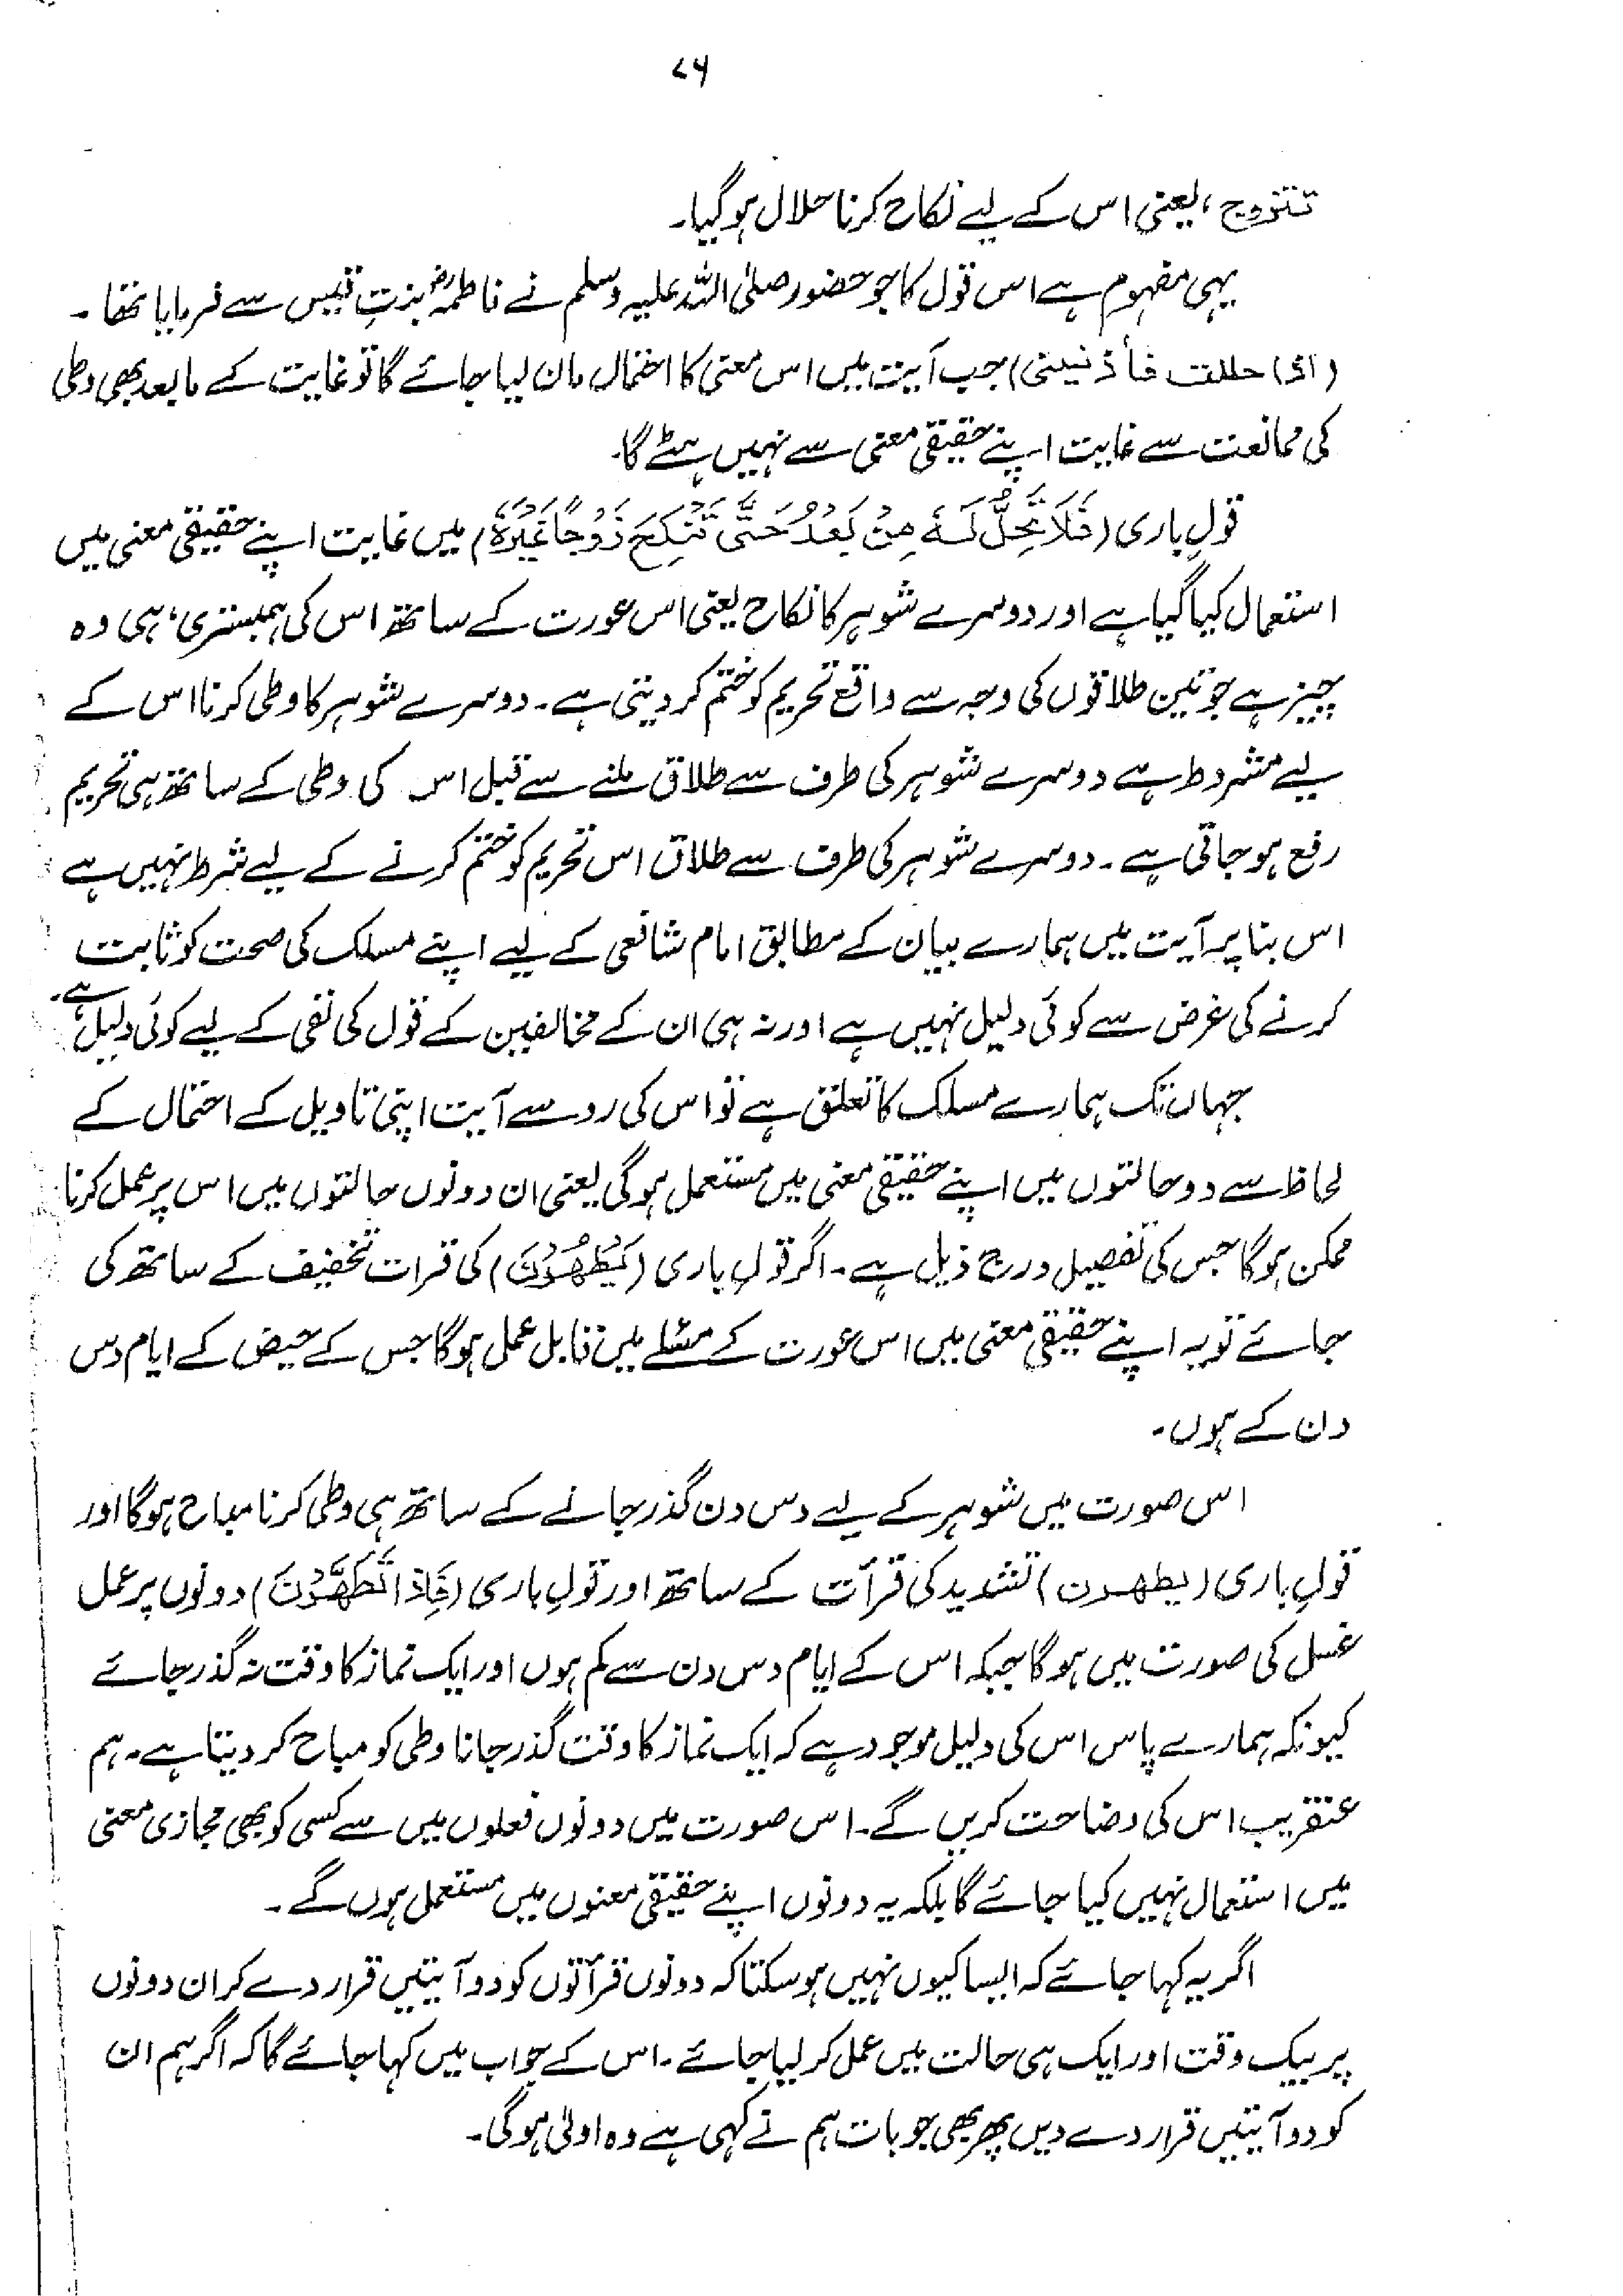 ۷۶
تتزوج، یعنی اس کے لیے نکاح کرنا حلال ہو گیا۔
یہی مفہوم ہے اس قول کا جو حضور صلی اللہ علیہ وسلم نے فاطمہؓ بنتِ قیس سے فرمایا تھا۔
(اذا حللت فأذنینی) جب آیت میں اس معنی کا احتمال مان لیا جائے گا تو غایت کے مابعد بھی وطی
کی ممانعت سے غایت اپنے حقیقی معنی سے نہیں ہٹے گا۔
قولِ باری (فَلَا تَحِلُّ لَهٗ مِنْ بَعْدُ حَتّٰی تَنْكِحَ زَوْجًا غَيْرَهٗ) میں غایت اپنے حقیقی معنی میں
استعمال کیا گیا ہے اور دوسرے شوہر کا نکاح یعنی اس عورت کے ساتھ اس کی ہمبستری، ہی وہ
چیز ہے جو تین طلاقوں کی وجہ سے واقع تحریم کو ختم کر دیتی ہے۔ دوسرے شوہر کا وطی کرنا اس کے
لیے مشروط ہے دوسرے شوہر کی طرف سے طلاق ملنے سے قبل اس کی وطی کے ساتھ ہی تحریم
رفع ہو جاتی ہے۔ دوسرے شوہر کی طرف سے طلاق اس تحریم کو ختم کرنے کے لیے شرط نہیں ہے
اس بنا پر آیت میں ہمارے بیان کے مطابق امام شافعی کے لیے اپنے مسلک کی صحت کو ثابت
کرنے کی غرض سے کوئی دلیل نہیں ہے اور نہ ہی ان کے مخالفین کے قول کی نفی کے لیے کوئی دلیل ہے۔
جہاں تک ہمارے مسلک کا تعلق ہے تو اس کی رو سے آیت اپنی تاویل کے احتمال کے
لحاظ سے دو حالتوں میں اپنے حقیقی معنی میں مستعمل ہو گی یعنی ان دونوں حالتوں میں اس پر عمل کرنا
ممکن ہو گا جس کی تفصیل درج ذیل ہے۔ اگر قولِ باری (يَطْهُرْنَ) کی قرات تخفیف کے ساتھ کی
جائے تو یہ اپنے حقیقی معنی میں اس عورت کے مسئلے میں قابل عمل ہو گا جس کے حیض کے ایام دس
دن کے ہوں۔
اس صورت میں شوہر کے لیے دس دن گذر جانے کے ساتھ ہی وطی کرنا مباح ہو گا اور
قولِ باری (یطھرن) تشدید کی قرأت کے ساتھ اور قولِ باری (فَاِذَا تَطَهَّرْنَ) دونوں پر عمل
غسل کی صورت میں ہو گا جبکہ اس کے ایام دس دن سے کم ہوں اور ایک نماز کا وقت نہ گذر جائے
کیونکہ ہمارے پاس اس کی دلیل موجود ہے کہ ایک نماز کا وقت گذر جانا وطی کو مباح کر دیتا ہے۔ ہم
عنقریب اس کی وضاحت کریں گے۔ اس صورت میں دونوں فعلوں میں سے کسی کو بھی مجازی معنی
میں استعمال نہیں کیا جائے گا بلکہ یہ دونوں اپنے حقیقی معنوں میں مستعمل ہوں گے۔
اگر یہ کہا جائے کہ ایسا کیوں نہیں ہو سکتا کہ دونوں قرأتوں کو دو آیتیں قرار دے کر ان دونوں
پر بیک وقت اور ایک ہی حالت میں عمل کر لیا جائے۔ اس کے جواب میں کہا جائے گا کہ اگر ہم ان
کو دو آیتیں قرار دے دیں پھر بھی جو بات ہم نے کہی ہے وہ اولیٰ ہو گی۔